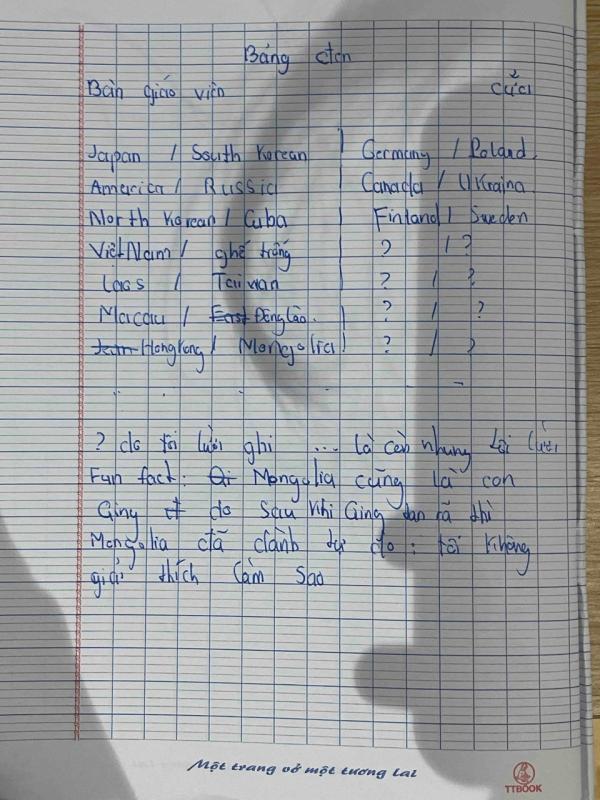 Bảng đen
Bàn giáo viên cửa
Japan / South Korean | Germany / Poland.
America / Russia Canada / UKraina
North Korean / Cuba | Finland / Sweden
ViệtNam / ghế trống | ? / ?
Laos / Taiwan | ? / ?
Macau / East Đông Lào. | ? / ?
HongKong / Mongolia | ? / ?
? do tôi lười ghi ... là còn nhưng tôi lười
Fun fact: Mongolia cũng là con
Qing do sau khi Qing tan rã thì
Mongolia đã dành tự do : tôi không
giải thích làm sao
Một trang vở một tương lai
TTBOOK